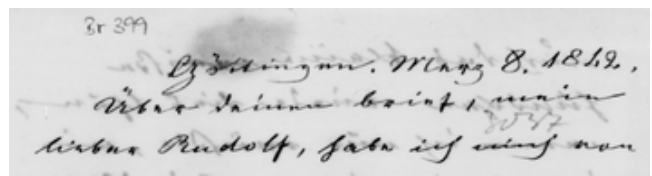 Br 399
Göttingen. Merz 8. 1822.
Über deinen brief, mein
lieber Rudolf, habe ich mich von